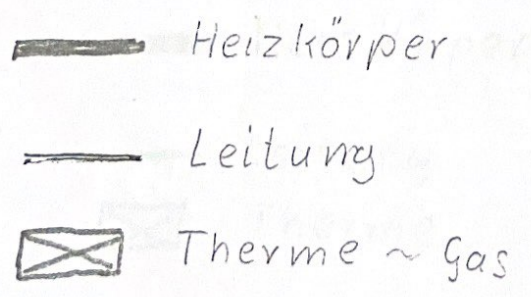 Heizkörper
Leitung
Therme ~ Gas